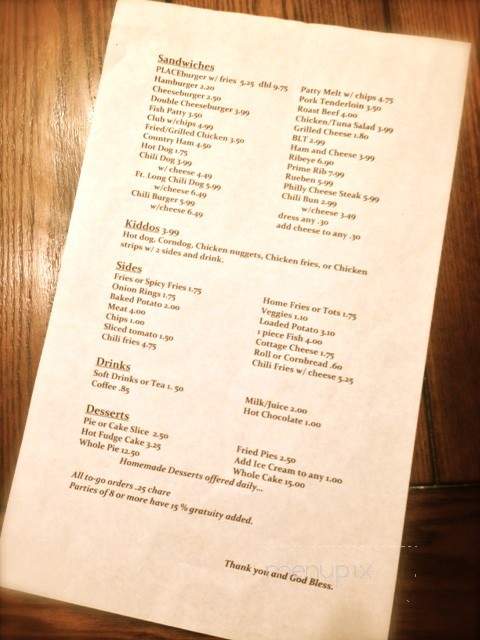 Sandwiches
PLACEburger w/ fries 5.25 dbl 9.75
Hamburger 2.20
Cheeseburger 2.50
Double Cheeseburger 3.99
Fish Patty 3.50
Club w/chips 4.99
Fried/Grilled Chicken 3.50
Country Ham 4.50
Hot Dog 1.75
Chili Dog 3.99
w/ cheese 4.49
Ft. Long Chili Dog 5.99
w/cheese 6.49
Chili Burger 5.99
w/cheese 6.49
Patty Melt w/ chips 4.75
Pork Tenderloin 3.50
Roast Beef 4.00
Chicken/Tuna Salad 3.99
Grilled Cheese 1.80
BLT 2.99
Ham and Cheese 3.99
Ribeye 6.90
Prime Rib 7.99
Rueben 5.99
Philly Cheese Steak 5.99
Chili Bun 2.99
w/cheese 3.49
dress any .30
add cheese to any .30
Kiddos 3.99
Hot dog, Corndog, Chicken nuggets, Chicken fries, or Chicken
strips w/ 2 sides and drink.
Sides
Fries or Spicy Fries 1.75
Onion Rings 1.75
Baked Potato 2.00
Meat 4.00
Chips 1.00
Sliced tomato 1.50
Chili fries 4.75
Home Fries or Tots 1.75
Veggies 1.10
Loaded Potato 3.10
1 piece Fish 4.00
Cottage Cheese 1.75
Roll or Cornbread .60
Chili Fries w/ cheese 5.25
Drinks
Soft Drinks or Tea 1. 50
Coffee .85
Milk/Juice 2.00
Hot Chocolate 1.00
Desserts
Pie or Cake Slice 2.50
Hot Fudge Cake 3.25
Whole Pie 12.50
Fried Pies 2.50
Add Ice Cream to any 1.00
Whole Cake 15.00
Homemade Desserts offered daily...
All to-go orders .25 chare
Parties of 8 or more have 15 % gratuity added.
Thank you and God Bless.
menupix